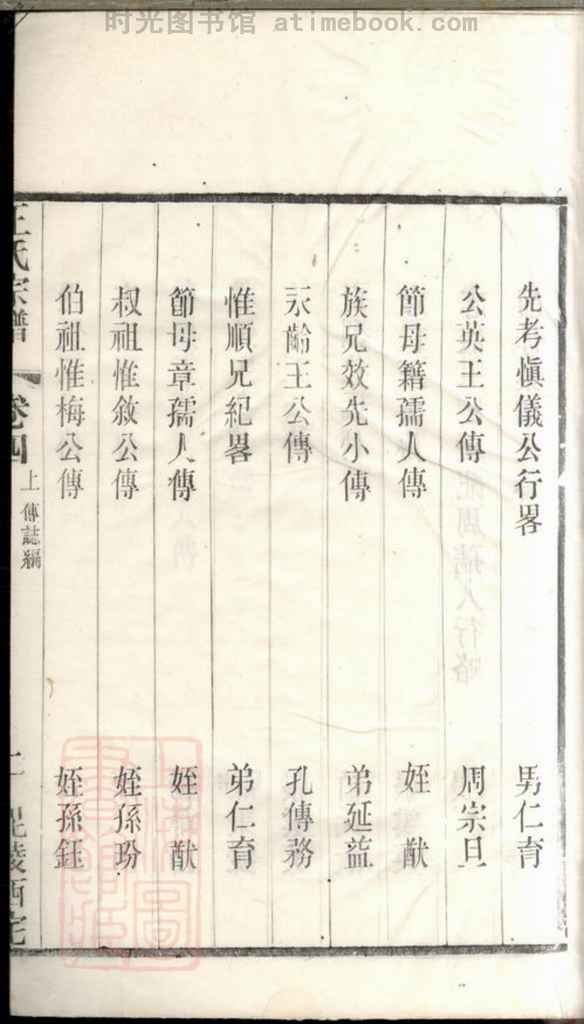 时光图书馆 atimebook.com
先考愼儀公行畧 男仁育
公英王公傳 周宗旦
節母籍孺人傳 姪猷
族兄效先小傳 弟延益
永齡王公傳 孔傳務
惟順兄紀畧 弟仁育
節母章孺人傳 姪猷
叔祖惟敘公傳 姪孫玢
伯祖惟梅公傳 姪孫鈺
王氏宗譜 卷四 上 傳誌編 毘陵西宅